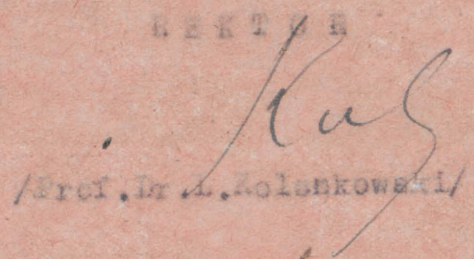 REKTOR
/Prof.Dr.L.Kolankowski/